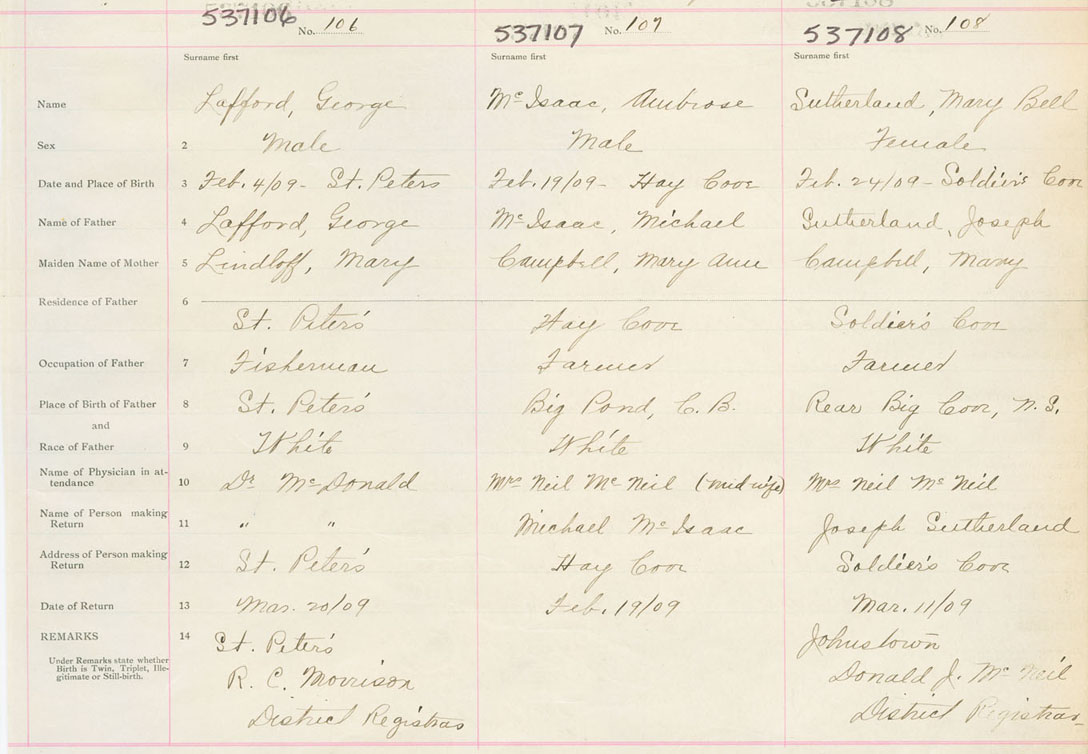 537106 No. 106 537107 No. 107 537108 No. 108
Surname first Surname first Surname first
Name Lafford, George McIsaac, Ambrose Sutherland, Mary Bell
Sex 2 Male Male Female
Date and Place of Birth 3 Feb. 4/09 - St. Peters Feb. 19/09 - Hay Cove Feb. 24/09 - Soldier's Cove
Name of Father 4 Lafford, George McIsaac, Michael Sutherland, Joseph
Maiden Name of Mother 5 Lindloff, Mary Campbell, Mary Ann Campbell, Mary
Residence of Father 6
St. Peter's Hay Cove Soldier's Cove
Occupation of Father 7 Fisherman Farmer Farmer
Place of Birth of Father 8 St. Peter's Big Pond, C.B. Rear Big Cove, N.S.
and
Race of Father 9 White White White
Name of Physician in at-
tendance 10 Dr McDonald Mrs Neil McNeil (midwife) Mrs Neil McNeil
Name of Person making
Return 11 " " Michael McIsaac Joseph Sutherland
Address of Person making
Return 12 St. Peter's Hay Cove Soldier's Cove
Date of Return 13 Mar. 20/09 Feb. 19/09 Mar. 11/09
REMARKS 14 St. Peter's Johnstown
Under Remarks state whether
Birth is Twin, Triplet, Ille-
gitimate or Still-birth.
R. C. Morrison Donald J. McNeil
District Registrar District Registrar